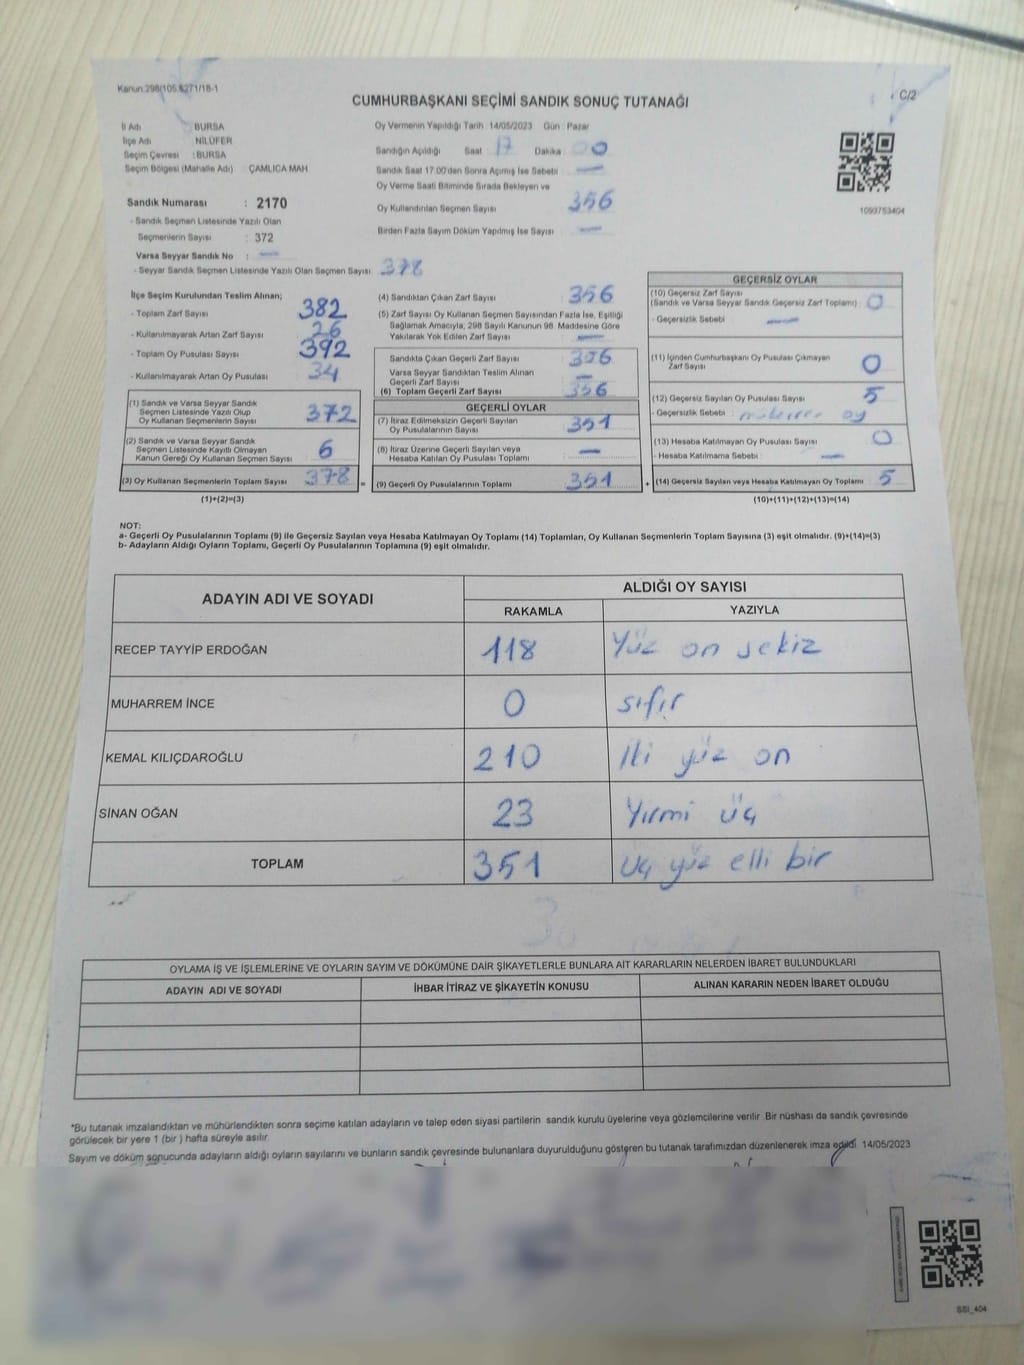 Kanun:298/105.6271/18-1
C/2
CUMHURBAŞKANI SEÇİMİ SANDIK SONUÇ TUTANAĞI
İl Adı : BURSA
İlçe Adı : NİLÜFER
Seçim Çevresi : BURSA
Seçim Bölgesi (Mahalle Adı) : ÇAMLICA MAH
Sandık Numarası : 2170
- Sandık Seçmen Listesinde Yazılı Olan
Seçmenlerin Sayısı : 372
Varsa Seyyar Sandık No : —
- Seyyar Sandık Seçmen Listesinde Yazılı Olan Seçmen Sayısı : 378
Oy Vermenin Yapıldığı Tarih : 14/05/2023 Gün : Pazar
Sandığın Açıldığı Saat : 17 Dakika : 00
Sandık Saat 17:00'den Sonra Açılmış İse Sebebi : —
Oy Verme Saati Bitiminde Sırada Bekleyen ve
Oy Kullandırılan Seçmen Sayısı 356
Birden Fazla Sayım Döküm Yapılmış İse Sayısı : —
1093753404
İlçe Seçim Kurulundan Teslim Alınan;
- Toplam Zarf Sayısı : 382
- Kullanılmayarak Artan Zarf Sayısı : 26
- Toplam Oy Pusulası Sayısı : 392
- Kullanılmayarak Artan Oy Pusulası : 34
(1) Sandık ve Varsa Seyyar Sandık
Seçmen Listesinde Yazılı Olup
Oy Kullanan Seçmen Sayısı : 372
(2) Sandık ve Varsa Seyyar Sandık
Seçmen Listesinde Kayıtlı Olmayan
Kanun Gereği Oy Kullanan Seçmen Sayısı : 6
(3) Oy Kullanan Seçmenlerin Toplam Sayısı : 378
(1)+(2)=(3)
(4) Sandıktan Çıkan Zarf Sayısı : 356
(5) Zarf Sayısı Oy Kullanan Seçmen Sayısından Fazla İse, Eşitliği
Sağlamak Amacıyla, 298 Sayılı Kanunun 98. Maddesine Göre
Yakılarak Yok Edilen Zarf Sayısı : —
Sandıkta Çıkan Geçerli Zarf Sayısı : 356
Varsa Seyyar Sandıktan Teslim Alınan
Geçerli Zarf Sayısı : —
(6) Toplam Geçerli Zarf Sayısı : 356
GEÇERLİ OYLAR
(7) İtiraz Edilmeksizin Geçerli Sayılan
Oy Pusulalarının Sayısı : 351
(8) İtiraz Üzerine Geçerli Sayılan veya
Hesaba Katılan Oy Pusulası Toplamı : —
= (9) Geçerli Oy Pusulalarının Toplamı : 351
GEÇERSİZ OYLAR
(10) Geçersiz Zarf Sayısı
(Sandık ve Varsa Seyyar Sandık Geçersiz Zarf Toplamı) : 0
- Geçersizlik Sebebi : —
(11) İçinden Cumhurbaşkanı Oy Pusulası Çıkmayan
Zarf Sayısı : 0
(12) Geçersiz Sayılan Oy Pusulası Sayısı : 5
- Geçersizlik Sebebi : oy
(13) Hesaba Katılmayan Oy Pusulası Sayısı : 0
- Hesaba Katılmama Sebebi : —
+ (14) Geçersiz Sayılan veya Hesaba Katılmayan Oy Toplamı : 5
(10)+(11)+(12)+(13)=(14)
NOT:
a- Geçerli Oy Pusulalarının Toplamı (9) ile Geçersiz Sayılan veya Hesaba Katılmayan Oy Toplamı (14) Toplamları, Oy Kullanan Seçmenlerin Toplam Sayısına (3) eşit olmalıdır. (9)+(14)=(3)
b- Adayların Aldığı Oyların Toplamı, Geçerli Oy Pusulalarının Toplamına (9) eşit olmalıdır.
ADAYIN ADI VE SOYADI
ALDIĞI OY SAYISI
RAKAMLA YAZIYLA
RECEP TAYYİP ERDOĞAN 118 Yüz on sekiz
MUHARREM İNCE 0 sıfır
KEMAL KILIÇDAROĞLU 210 İki yüz on
SİNAN OĞAN 23 Yirmi üç
TOPLAM 351 Üç yüz elli bir
OYLAMA İŞ VE İŞLEMLERİNE VE OYLARIN SAYIM VE DÖKÜMÜNE DAİR ŞİKAYETLERLE BUNLARA AİT KARARLARIN NELERDEN İBARET BULUNDUKLARI
ADAYIN ADI VE SOYADI İHBAR İTİRAZ VE ŞİKAYETİN KONUSU ALINAN KARARIN NEDEN İBARET OLDUĞU
*Bu tutanak imzalandıktan ve mühürlendikten sonra seçime katılan adayların ve talep eden siyasi partilerin sandık kurulu üyelerine veya gözlemcilerine verilir. Bir nüshası da sandık çevresinde
görülecek bir yere 1 (bir ) hafta süreyle asılır.
Sayım ve döküm sonucunda adayların aldığı oyların sayılarını ve bunların sandık çevresinde bulunanlara duyurulduğunu gösteren bu tutanak tarafımızdan düzenlenerek imza edildi. 14/05/2023
SSI_404